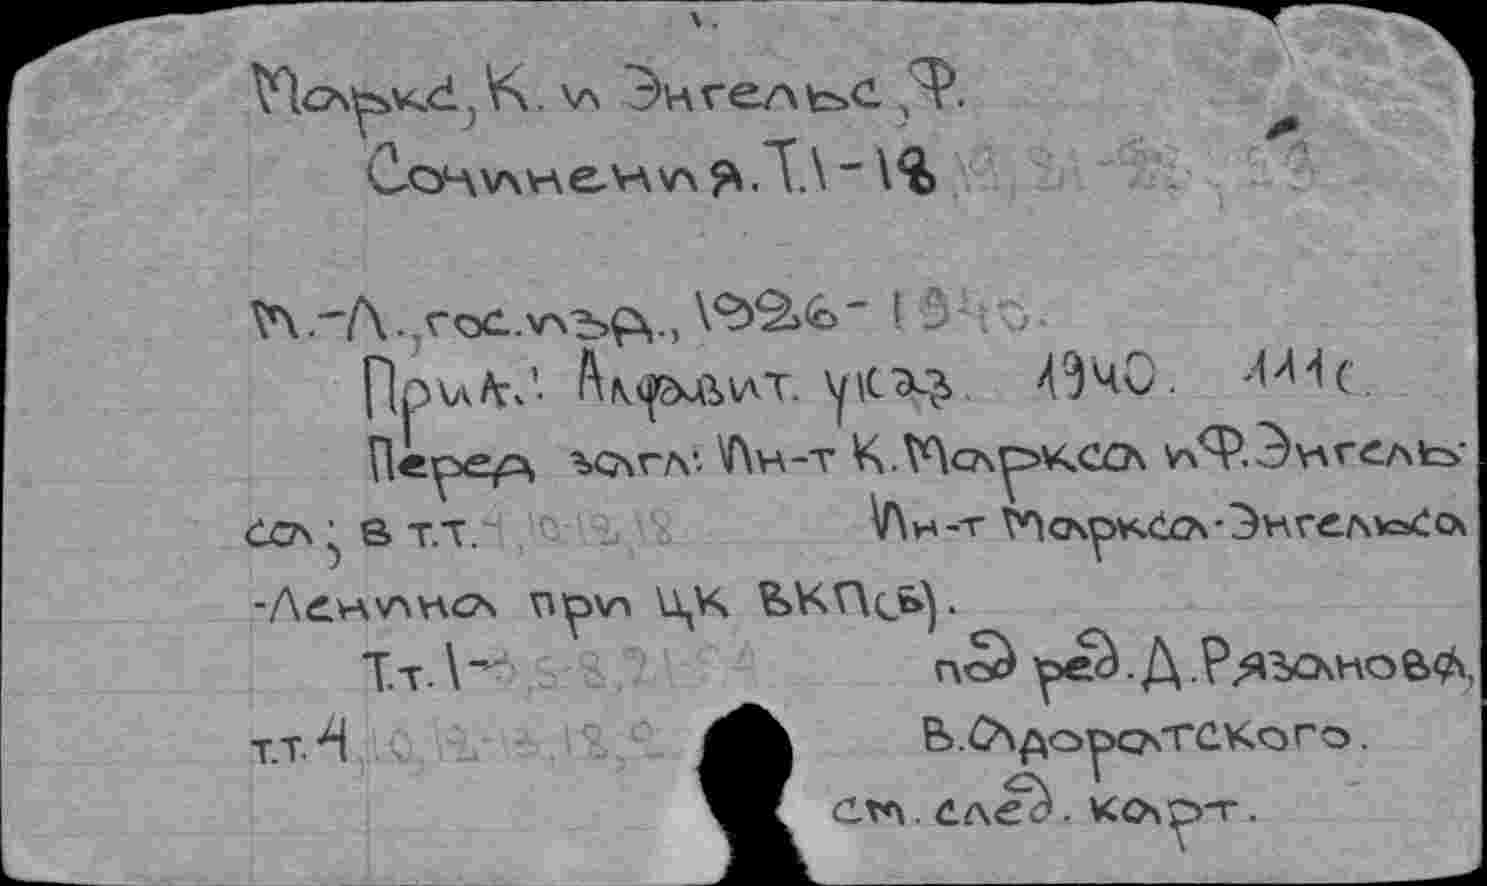 Маркс, К. и Энгельс, Ф.
Сочинения. Т.1-
М.-Л., гос.изд., 1926-1940.
Прил.: Алфавит. указ. 1940. 111с.
Перед загл: Ин-т К.Маркса и Ф.Энгель-
са; в т.т. Ин-т Маркса-Энгельса
-Ленина при ЦК ВКП(б).
Т.т. 1- под ред. Д.Рязанова,
т.т. 4 В.Адоратского.
см. след. карт.